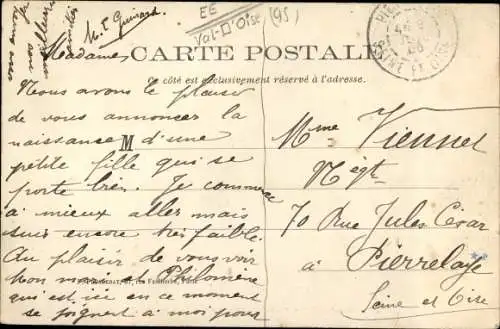 EE
Val-D'Oise (95)
M. E. Guinard
CARTE POSTALE
Ce côté est exclusivement réservé à l'adresse.
Mesdames
Nous avons le plaisir
de vous annoncer la
naissance d'une
petite fille qui se
porte bien. Je commence
à mieux aller mais
suis encore très faible.
Au plaisir de vous voir
Mon mari et Philomène
qui est ici en ce moment
se joignent à moi pour
M
Mme Viennet
Négt
70 Rue Jules César
à Pierrelaye
Seine et Oise
SEINE ET OISE